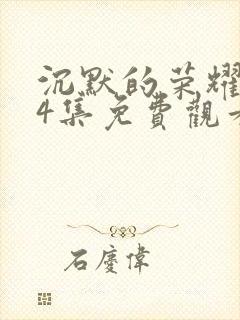 沉默的荣耀
4集免費觀
石慶偉